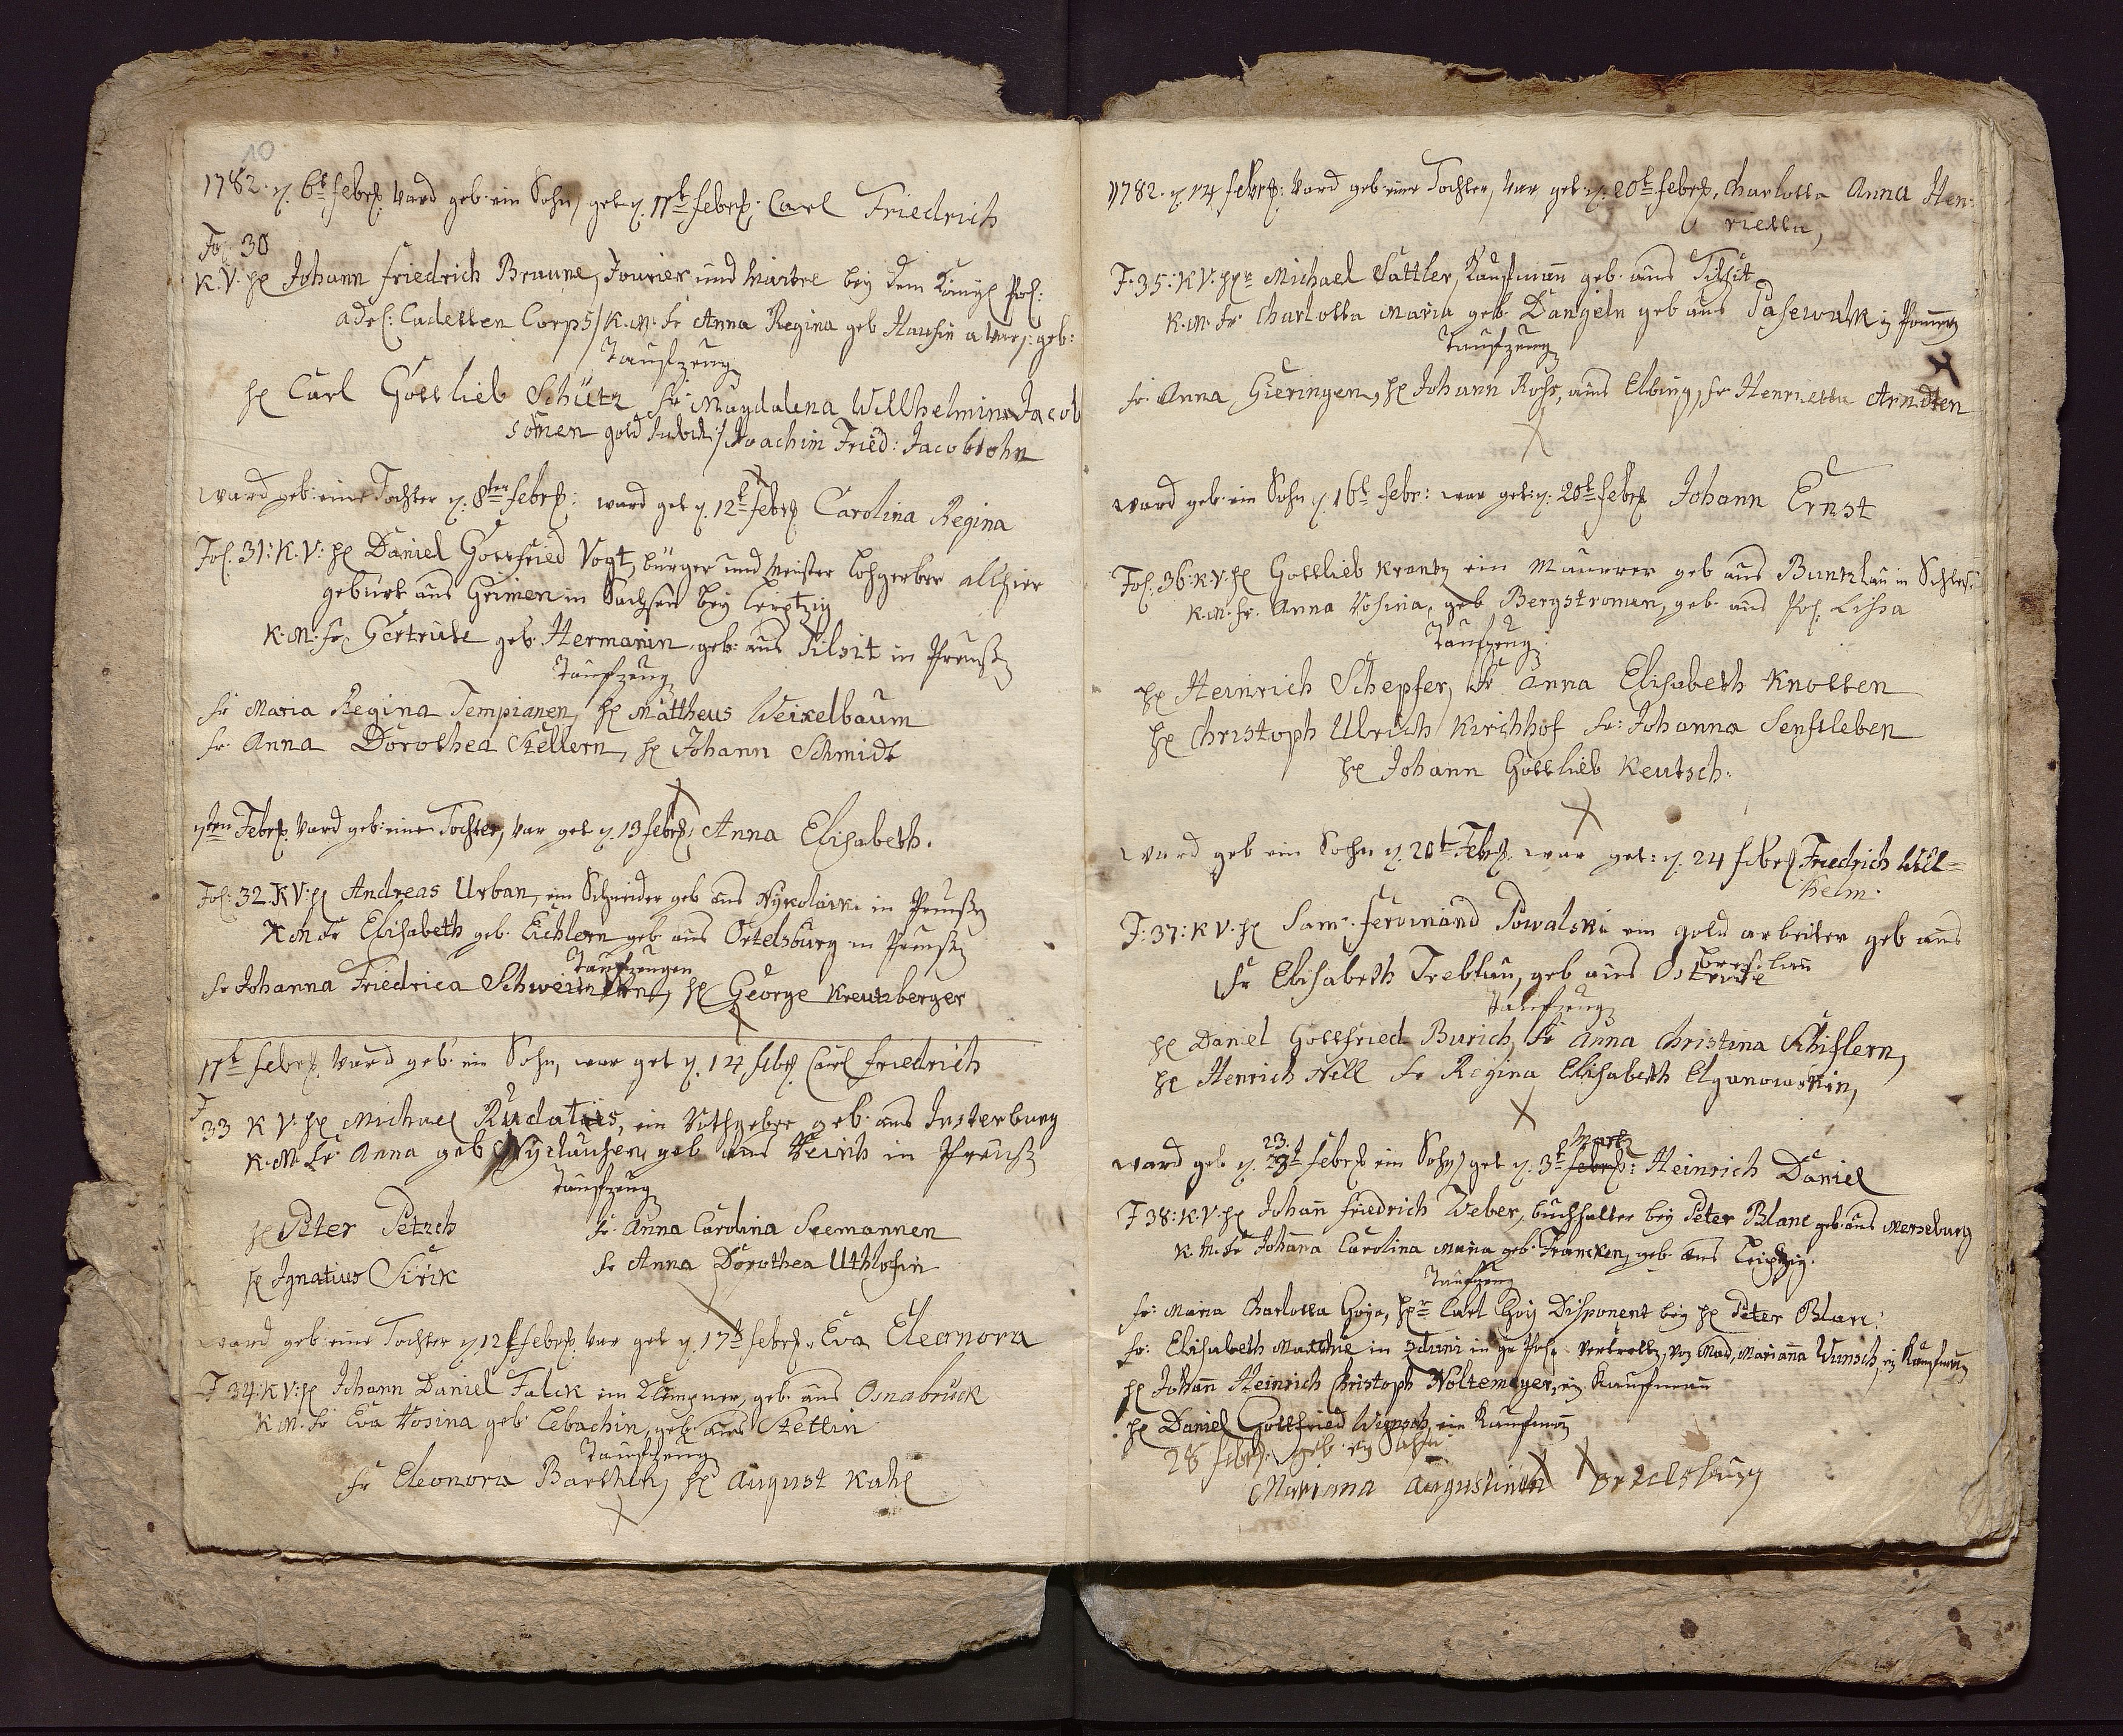 10
1782. d. 6t febrs. Ward geb. ein Sohn, get d. 17t febrs. Carl Friedrich
Fol. 30
K. V. H. Johann friedrich Braune, Fourier und bey dem Königl. Pol:
adel: Cadetten Corps / K. M. Fr Anna Regina geb. a Wars: geb:
Taufzeug
H. Carl Gottlieb Schütz Fr Magdalena Willhelmina Jacob
sonen gold / Joachim Fried: Jacobsohn
Ward geb: eine Tochter d. 8ten febrs: ward get d. 12t febrs Carolina Regina
Fol. 31: K. V: H. Daniel Gottfried Vogt, bürger und Meister Lohgerber allhier
gebürt aus Grimen in Sachsen bey Leiptzig
K. M: Fr. Gertrute geb. Hermanin geb: aus Tilsit in Preuß
Taufzeug
Fr Maria Regina Tempianen, H. Mattheus Weixelbaum
Fr. Anna Dorothea Stellern, H. Johann Schmidt
Febrs. Ward geb: eine Tochter, war get d. 13 febrs: Anna Elisabeth.
Fol: 32. K V: H Andreas Urban, ein Schneider geb aus Nykolaiki in Preußen
K M Fr Elisabeth geb. Eichlern geb. aus Ortelsburg in Preuß
Taufzeugen
Fr Johanna Friedrica H. George Kreutzberger
17t febrs. Ward geb. ein Sohn, war get d. 14 febrs. Carl friedrich
F 33 K V. H. Michael Rudatiis, ein geb. aus Insterburg
K. M. Fr. Anna geb geb aus in Preuß
Taufzeug
H. Peter Petzch Fr Anna Carolina Seemannen
H Ignatius Sirik Fr Anna Dorothea Uthofin
Ward geb: eine Tochter d 12t febrs. War get d. 17t febrs. Eva Eleonora
F 34: K V: H Johann Daniel Falck ein Klempner, geb. aus Osnabrück
K. M. Fr Eva Rosina geb. Lebachin, geb. aus Stettin
Taufzeug
Fr Eleonora Barthin, H. August Kahl
1782. d. 14 febrs: Ward geb. eine Tochter, War get. d. 20t febrs, Charlotta Anna Hen-
rietta,
F. 35: K V. Hr. Michael Sattler, Kaufmann geb. aus Tilsit
K. M. Fr. Charlotta Maria geb. Dangeln geb aus Pasewalk in Pommern
Taufzeug
Fr. Anna Gieringen, H. Johann Rohs, aus Elbing, Fr Henrietta Arndten
Ward geb. ein Sohn d. 16t febr: war get. d. 20t febrs Johann Ernst
Fol. 36: K. V. H Gottlieb Krantz ein Maurer geb aus Buntzlau in Schles:
K. M. Fr. Anna Rosina, geb Bergstroman, geb. aus Pol: Lissa
Taufzeug
H. Heinrich Schepfer, Fr Anna Elisabeth Knotten
H. Christoph Ulrich Kirchhof Fr: Johanna Senftleben
H. Johann Gottlieb Keutsch.
Ward geb ein Sohn d. 20t Febrs. war get: d. 24 febrs Friedrich Wil=
helm.
F: 37: K V. H Sam: ferdinand Powalski ein gold arbeiter geb aus
Breslau
Fr Elisabeth Treblau, geb aus Osterode
Taufzeug
H. Daniel Gottfried Burich, Fr Anna Christina Schiflern,
H. Henrich Nill Fr Regina Elisabeth Elganowskin,
23. Martz
Ward geb d. 23t febrs ein Sohn, get d. 3t febrs: Heinrich Daniel
F 38: K. V. H Johann friedrich Weber, buchhalter bey Peter Blanc geb: aus Merseburg
K. M. Fr Johanna Carolina Maria geb. Francken, geb. aus Leiptzig.
Taufzeug
Fr: Maria Charlotta Goya, Hr Carl Goy Disponent bey H. Peter Blan:
Fr: Elisabeth in Vertretten, von Mad, Marianna Wunsch, ein Kaufmann
H Johann Heinrich Christoph Noltemeyer, ein Kaufmann
H. Daniel Gottfried Wunsch, ein Kaufmann
28 febrs. geb. ein Sohn
Mariana Augustinin Ortelsburg